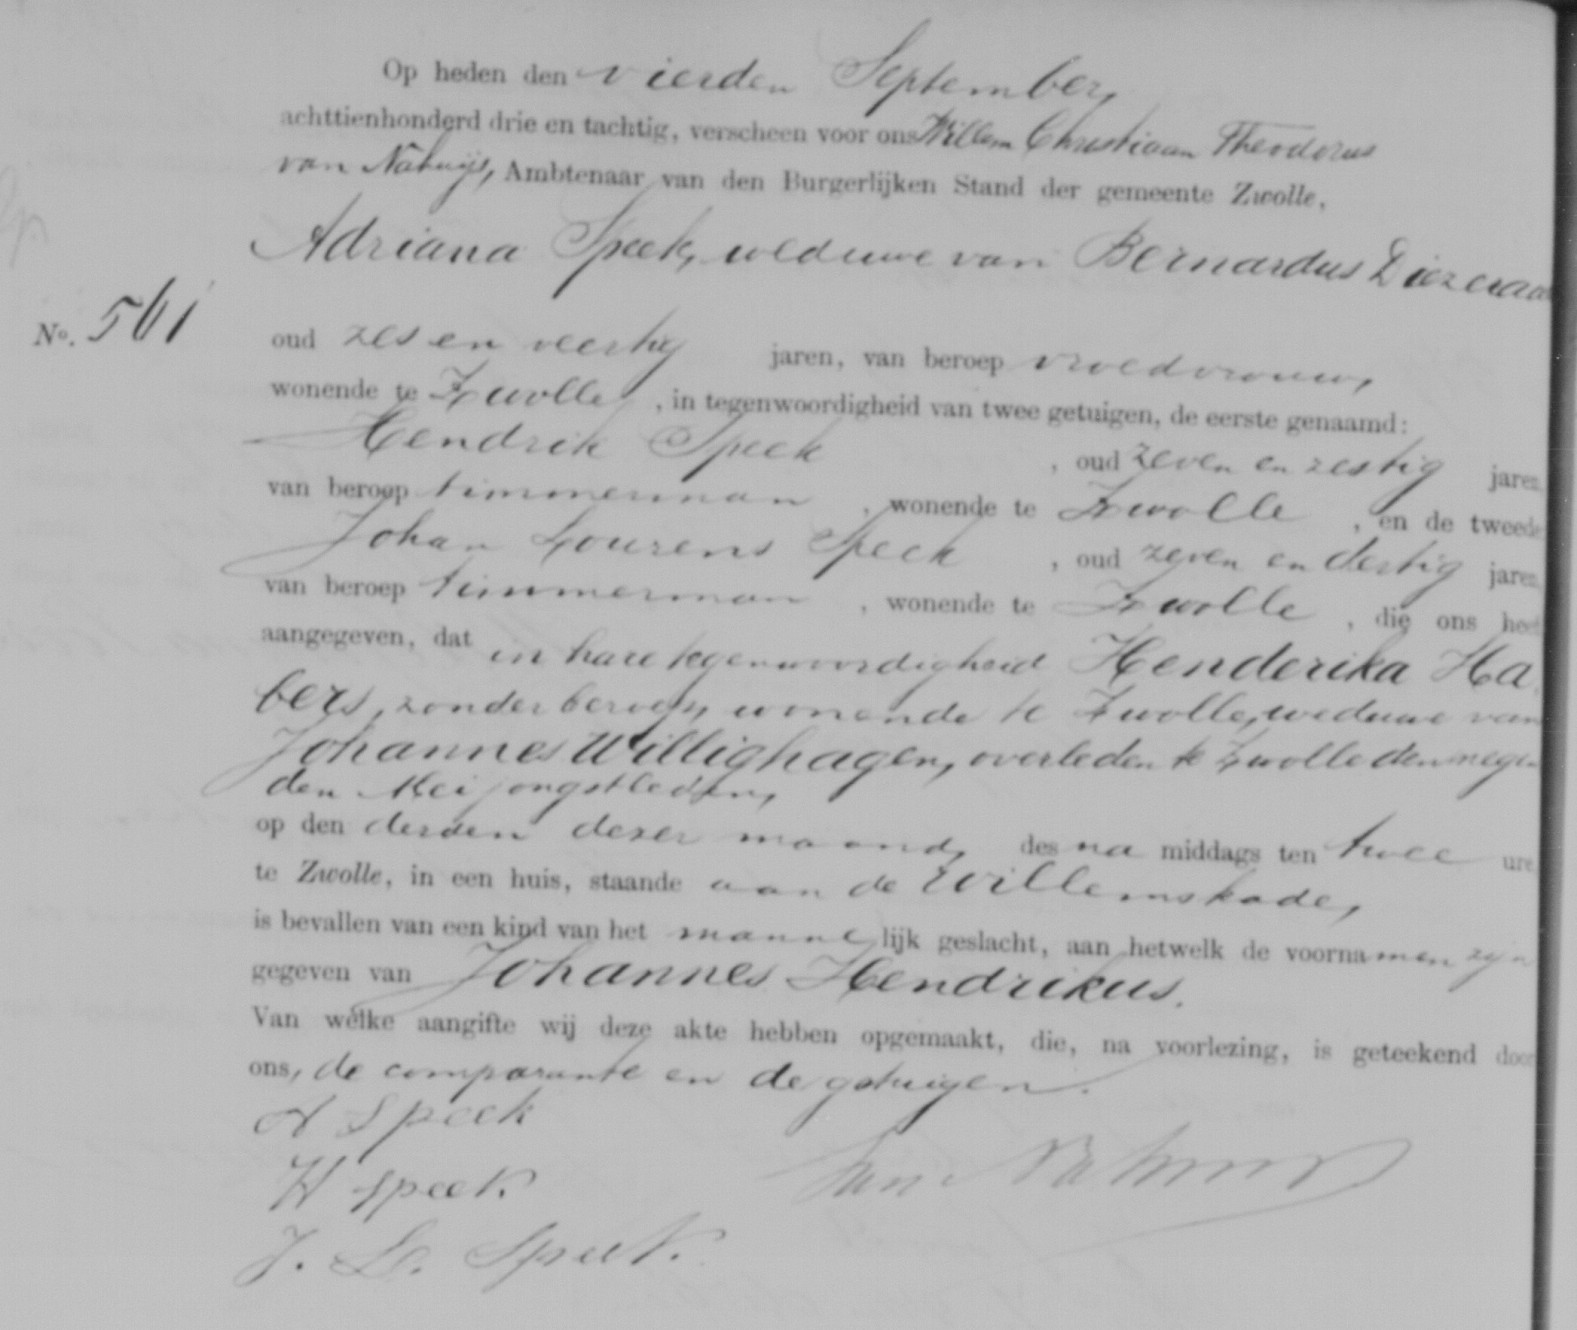 Op heden den vierden September,
achttienhonderd drie en tachtig, verscheen voor ons Willem Christiaan Theodorus
van Nahuijs, Ambtenaar van den Burgerlijken Stand der gemeente Zwolle,
Adriana Speek, weduwe van Bernardus Diezeraa
No. 561
oud zes en veertig jaren, van beroep vroedvrouw,
wonende te Zwolle, in tegenwoordigheid van twee getuigen, de eerste genaamd:
Hendrik Speek, oud zeven en zestig jaren,
van beroep timmerman, wonende te Zwolle, en de tweede
Johan Lourens Speek, oud zeven en dertig jaren,
van beroep timmerman, wonende te Zwolle, die ons heeft
aangegeven, dat in hare tegenwoordigheid Henderika Ha
bers, zonder beroep, wonende te Zwolle, weduwe van
Johannes Willighagen, overleden te Zwolle den negen
den Mei jongstleden,
op den derden dezer maand, des na middags ten twee ure
te Zwolle, in een huis, staande aan de Willemskade,
is bevallen van een kind van het mannelijk geslacht, aan hetwelk de voornamen zijn
gegeven van Johannes Hendrikus.
Van welke aangifte wij deze akte hebben opgemaakt, die, na voorlezing, is geteekend door
ons, de comparante en de getuigen.
A Speek
van Nahuys
H Speek
J. L. Speek.